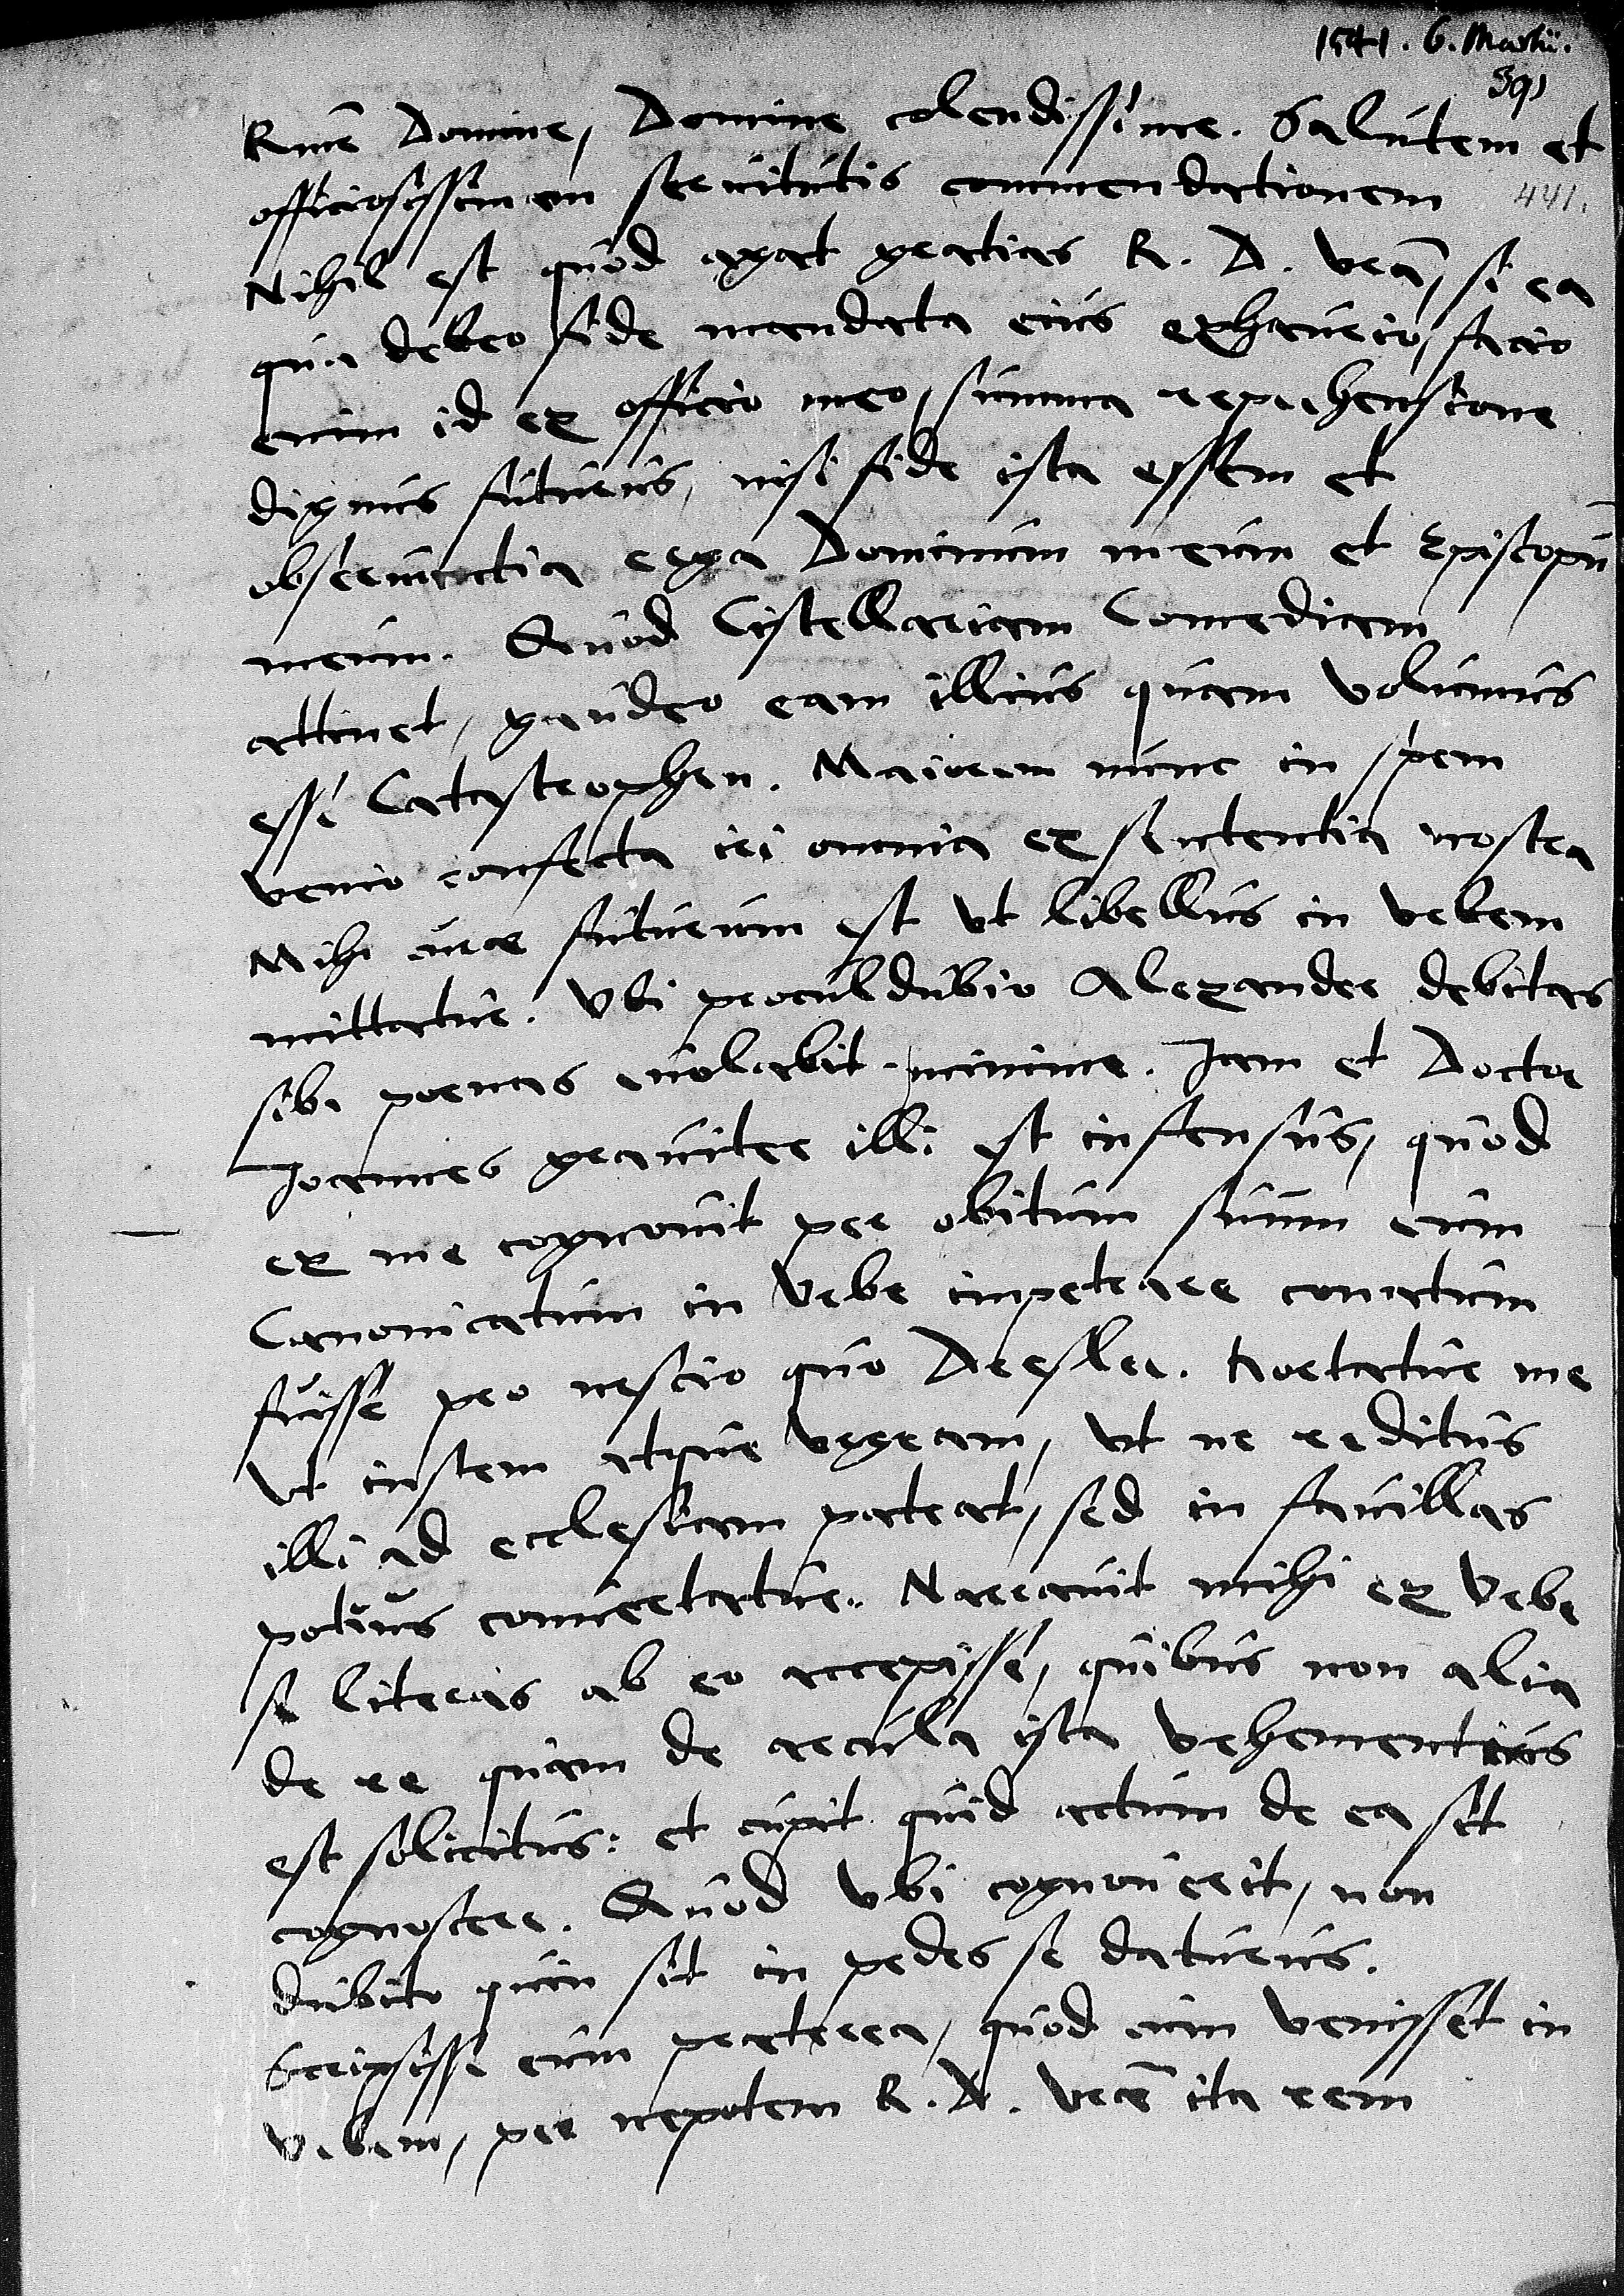 1541. 6. Martii.
391
Rme Domine, Domine colendissime. Salutem et
officiosissimam servitutis commendationem
441.
Nihil est quod agat gratias R. D. vra, si ea
qua debeo fide mandata eius exhauero, facio
enim id ex officio meo, summa reprehensione
dignus futurus, nisi fide ista essem et
observantia erga Dominum meum et Episcopu
meum. Quod Cistellariam Comediam
attinet, gaudeo eam illius quam volumus
esse Catastrophen. Maiorem nunc in spem
venio confecta iri omnia ex sententia nostra
Mihi curae futurum est ut libellus in urbem
mittatur. Ubi proculdubio Alexander debitas
sibi poenas evolabit minime. Iam et Doctor
Joannes graviter illi est infensus, quod
ex me cognovit per obitum suum eum
Canonicatum in Urbe impetrare conatum
fuisse pro nescio quo Dresler. Hortatur me
ut instem atque urgeam, ut ne reditus
illi ad ecclesiam pateat, sed in favillas
potius convertatur. Narravit mihi ex Urbe
se literas ab eo accepisse, quibus non alia
de re quam de arcula ista vehementius
est solicitus: et cupit quid actum de ea sit
cognoscere. Quod ubi cognoverit, non
dubito quin sit in pedes se daturus.
Scripsisse eum praeterea, quod cum venisset in
Urbem, per nepotem R. D. vre ita rem